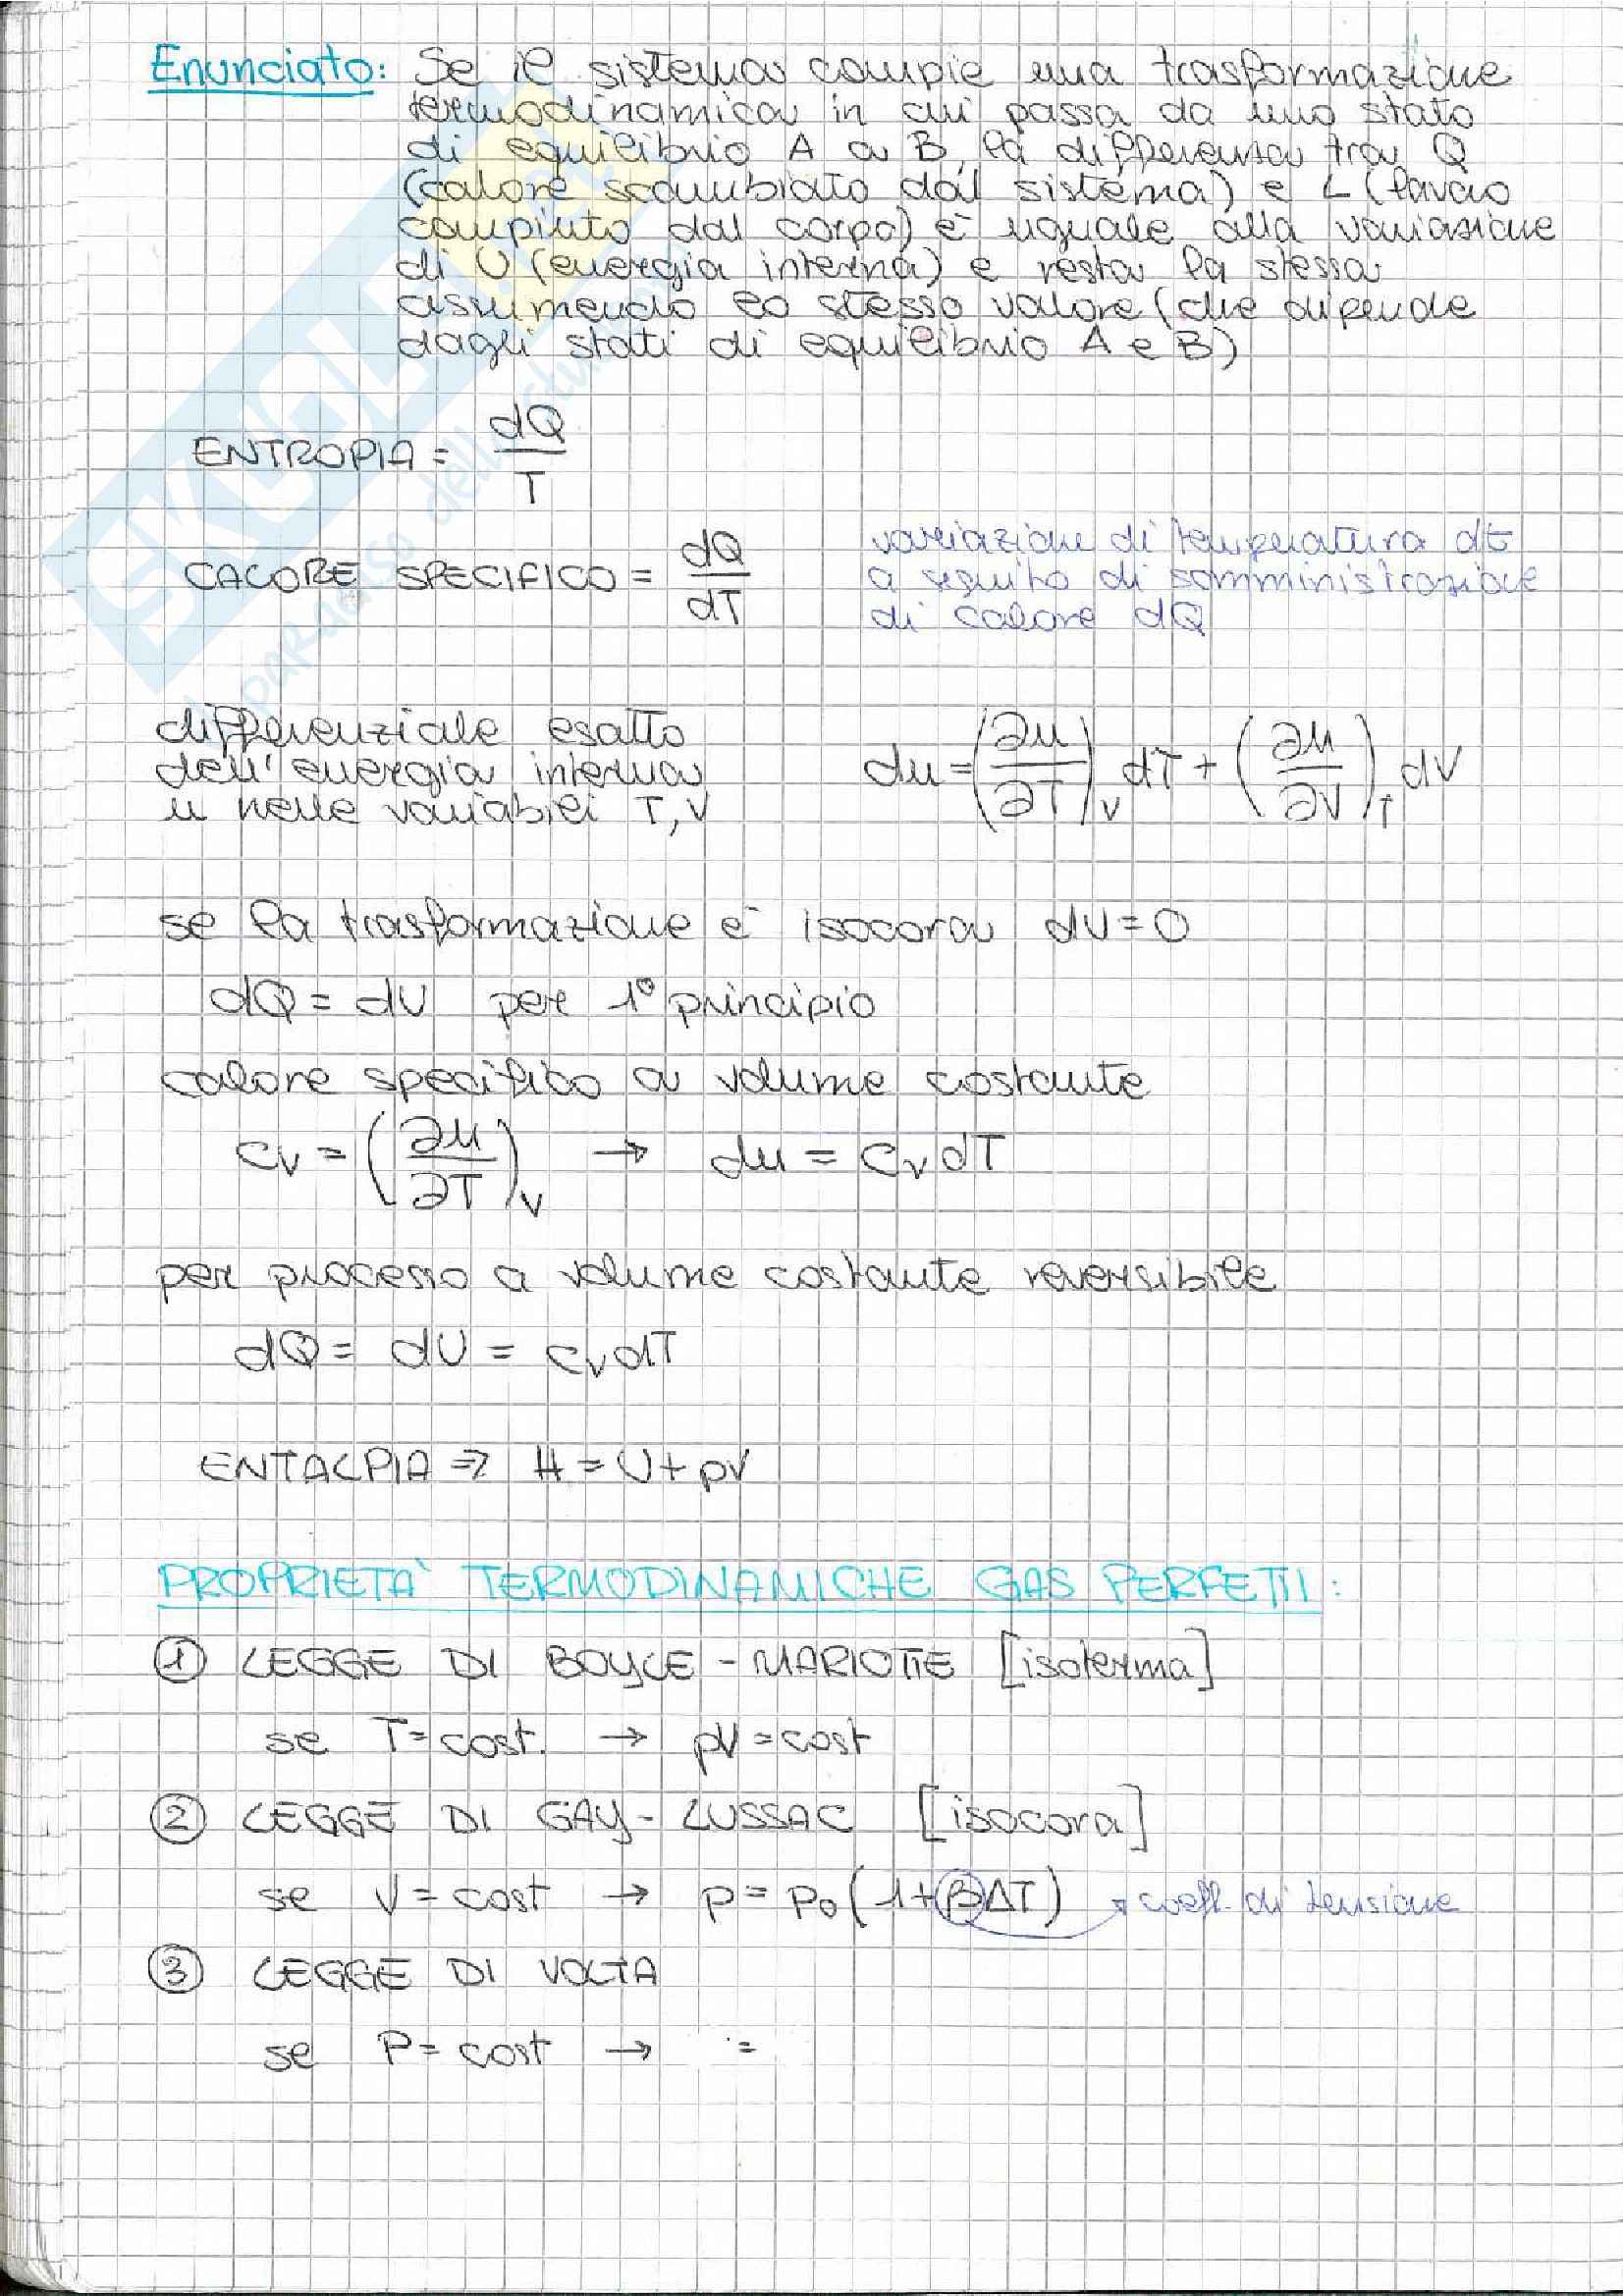 Enunciato: Se il sistema compie una trasformazione
termodinamica in cui passa da uno stato
di equilibrio A a B, la differenza tra Q
(calore scambiato dal sistema) e L (lavoro
compiuto dal corpo) è uguale alla variazione
di U (energia interna) e resta la stessa
assumendo lo stesso valore (che dipende
dagli stati di equilibrio A e B)
ENTROPIA = dQ/T
CALORE SPECIFICO = dQ/dT variazione di temperatura dt
a seguito di somministrazione
di calore dQ
differenziale esatto
dell'energia interna
u nelle variabili T, V
du = (∂u/∂T)_V dT + (∂u/∂V)_T dV
se la trasformazione è isocora dV = 0
dQ = dU per 1° principio
calore specifico a volume costante
c_V = (∂u/∂T)_V → du = c_V dT
per processo a volume costante reversibile
dQ = dU = c_V dT
ENTALPIA ⇒ H = U + pV
PROPRIETÀ TERMODINAMICHE GAS PERFETTI:
① LEGGE DI BOYLE - MARIOTTE [isoterma]
se T = cost. → pV = cost
② LEGGE DI GAY - LUSSAC [isocora]
se V = cost → p = p₀ (1 + βΔT) → coeff. di tensione
③ LEGGE DI VOLTA
se P = cost → =